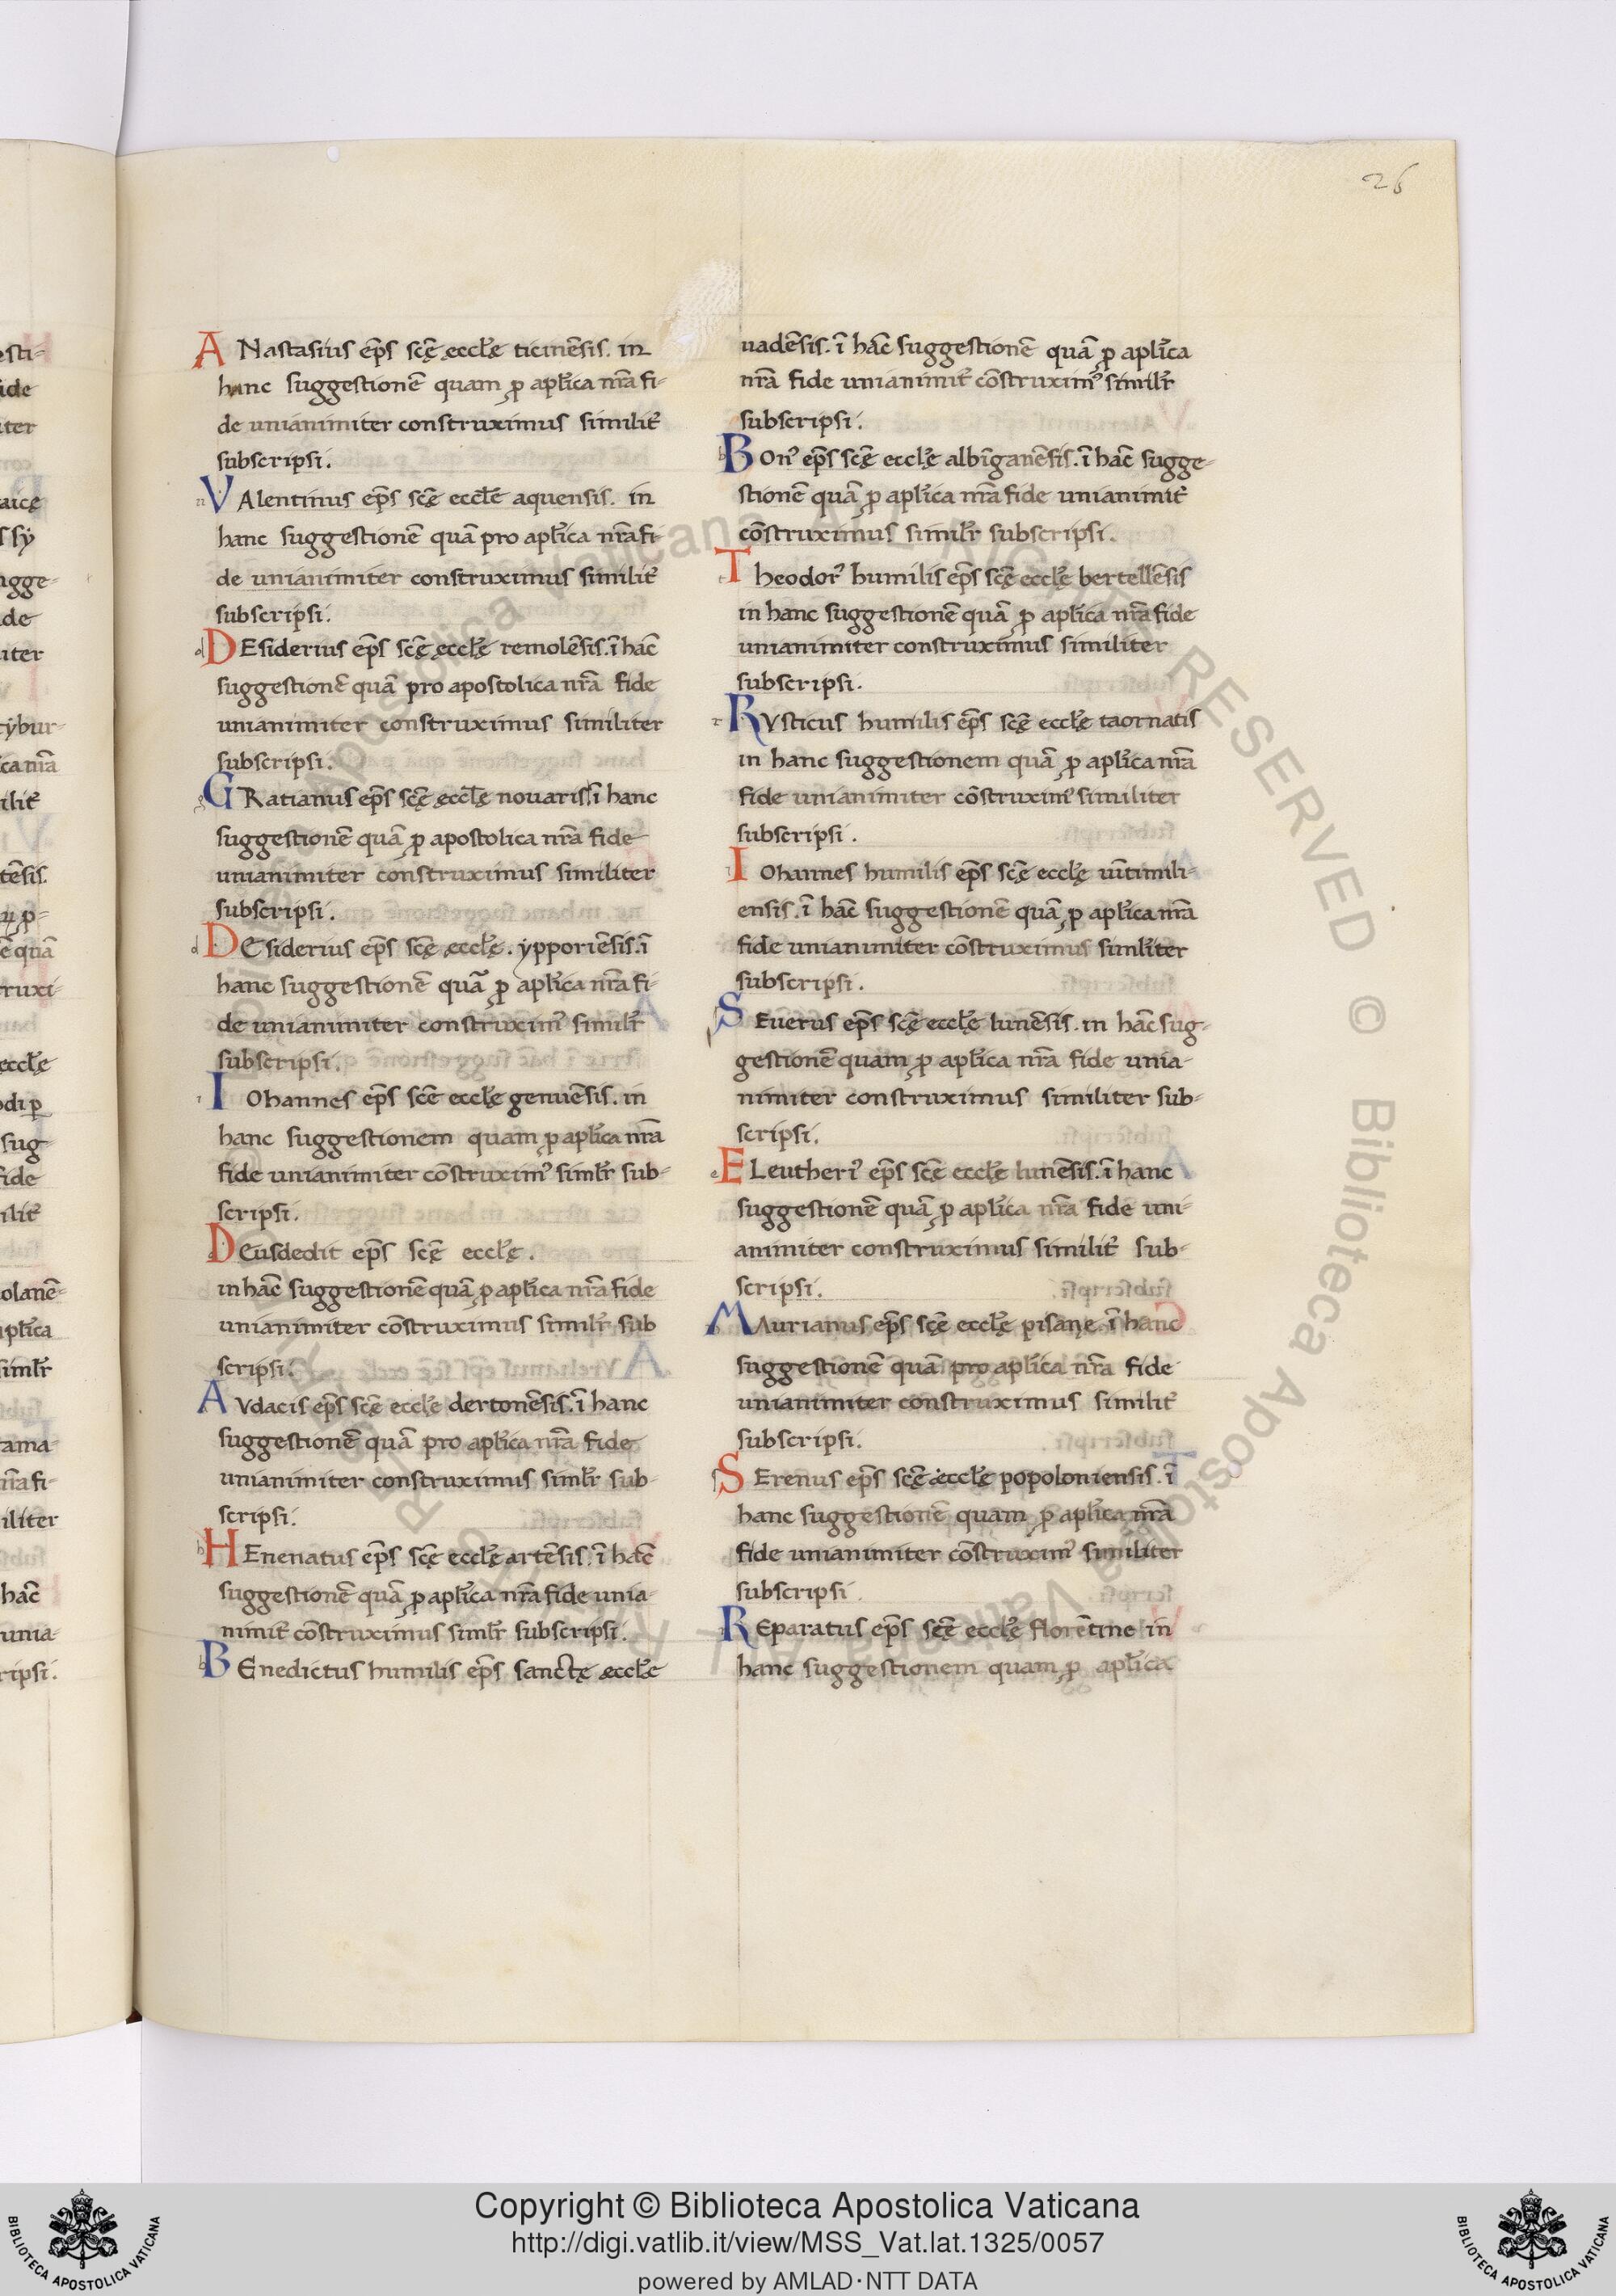 26
ANastasius ep̄s sc̄ę ęccƚę ticinēsis. in
hanc suggestionē quam ꝓ apƚica nr̄a fi-
de unianimiter construximus similit̄
subscripsi.
VAlentinus ep̄s sc̄ę eccƚe aquensis. in
hanc suggestionē quā pro apƚica nr̄a fi-
de unianimiter construximus similit̄
subscripsi.
DEsiderius ep̄s sc̄ę ęccƚę remolēsis. ī hāc
suggestionē quā pro apostolica nr̄a fide
unianimiter construximus similiter
subscripsi.
GRatianus ep̄s sc̄ę ęccƚe nouaris. ī hanc
suggestionē quā ꝓ apostolica nr̄a fide
unianimiter construximus similiter
subscripsi.
DEsiderius ep̄s sc̄ę ęccƚę. ypporiēsis. ī
hanc suggestionē quā ꝓ apƚica nr̄a fi-
de unianimiter construxim᾽ similr̄
subscripsi.
IOhannes ep̄s sc̄e eccƚę genuēsis. in
hanc suggestionem quam ꝓ apƚica nr̄a
fide unianimiter cōstruxim᾽ simlr̄ sub-
scripsi.
DEusdedit ep̄s sc̄ę eccƚę.
in hāc suggestionē quā ꝓ apƚica nr̄a fide
unianimiter cōstruximus similr̄ sub
scripsi.
AVdacis ep̄s sc̄ę eccƚe dertonēsis. ī hanc
suggestionē quā pro apƚica nr̄a fide
unianimiter construximus simlr̄ sub-
scripsi.
HEnenatus ep̄s sc̄ę eccƚę artēsis. ī hāc
suggestionē quā ꝓ apƚica nr̄a fide unia-
nimit̄ cōstruximus simlr̄ subscripsi.
BEnedictus humilis ep̄s sanctę ęccƚe
uadēsis. ī hāc suggestionē quā ꝓ apƚica
nr̄a fide unianimit̄ cōstruxim᾽ similr̄
subscripsi.
BOn᾽ ep̄s sc̄ę eccƚę albīganēsis. ī hāc sugge-
stionē quā ꝓ apƚica nr̄a fide unianimit̄
cōstruximus similr̄ subscripsi.
Theodor᾽ humilis ep̄s sc̄ę eccƚę bertellēsis
in hanc suggestionē quā ꝓ apƚica nr̄a fide
unianimiter construximus similiter
subscripsi.
RVsticus humilis ep̄s sc̄ę eccƚę taornatis
in hanc suggestionem quā ꝓ apƚica nr̄a
fide unianimiter cōstruxim᾽ similiter
subscripsi.
IOhannes humilis ep̄s sc̄ę eccƚę uītimili-
ensis. ī hāc suggestionē quā ꝓ apƚica nr̄a
fide unianimiter cōstruximus simƚiter
subscripsi.
SEuerus ep̄s sc̄ę eccƚę lunēsis. in hāc sug-
gestionē quam ꝓ apƚica nr̄a fide unia-
nimiter construximus similiter sub-
scripsi.
ELeutheri᾽ ep̄s sc̄ę eccƚę lunēsis. ī hanc
suggestionē quā ꝓ apƚica nr̄a fide uni-
animiter construximus similit̄ sub-
scripsi.
MAurianus ep̄s sc̄ę eccƚę pisanę. ī hanc
suggestionē quā pro apƚica nr̄a fide
unianimiter construximus similit̄
subscripsi.
SErenus ep̄s sc̄ę eccƚę popoloniensis. ī
hanc suggestionē quam ꝓ apƚica nr̄a
fide unianimiter cōstruxim᾽ similiter
subscripsi.
REparatus ep̄s sc̄ę eccƚę florētine in
hanc suggestionem quam ꝓ apƚica
Copyright © Biblioteca Apostolica Vaticana
http://digi.vatlib.it/view/MSS_Vat.lat.1325/0057
powered by AMLAD·NTT DATA
BIBLIOTECA APOSTOLICA VATICANA
BIBLIOTECA APOSTOLICA VATICANA